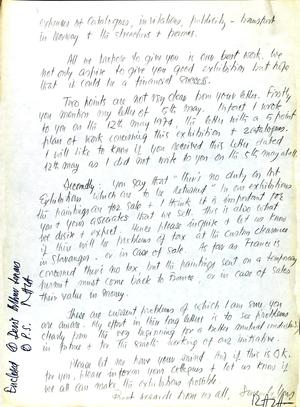 expenses of catalogues, invitations, publicity - transport
in Norway + the stretchers + frames.
All we propose to give you is our best work. We
not only aspire to give you good exhibition but hope
that it could be a financial success.
Two points are not very clear from your letter. Firstly
you mention my letter of 5th may. In fact I wrote
to you on the 12th may 1974, the letter with a 5 point
plan of work concerning this exhibition + catalogues.
I will like to know if you received this letter dated
12th may as I did not write to you on the 5th may at all.
Secondly: you say that "There's no duty on art
Exhibitions which are to be returned" In our exhibitions
the paintings are for sale + I think it is important for
you + your associates that we sell. this is also what
we desire + expect. Hence please inquire + let us know
if there will be problems of tax at the custom clearance
in Stavanger. or in case of sale. As far as France is
concerned there's no tax, but the paintings sent on a temporary
permit must come back to France. or in case of sales
their value in money.
These are current problems of which I am sure you
are aware. My effort in this long letter is to see problems
clearly from the very beginning for a better mutual understanding
in future + for the smooth working of our initiative.
Please let me have your mind and if this is O.K.
for you, please inform your colleagues + let us know if
we all can make the exhibition possible.
regards from us all,
Enclosed ①
② P.S.